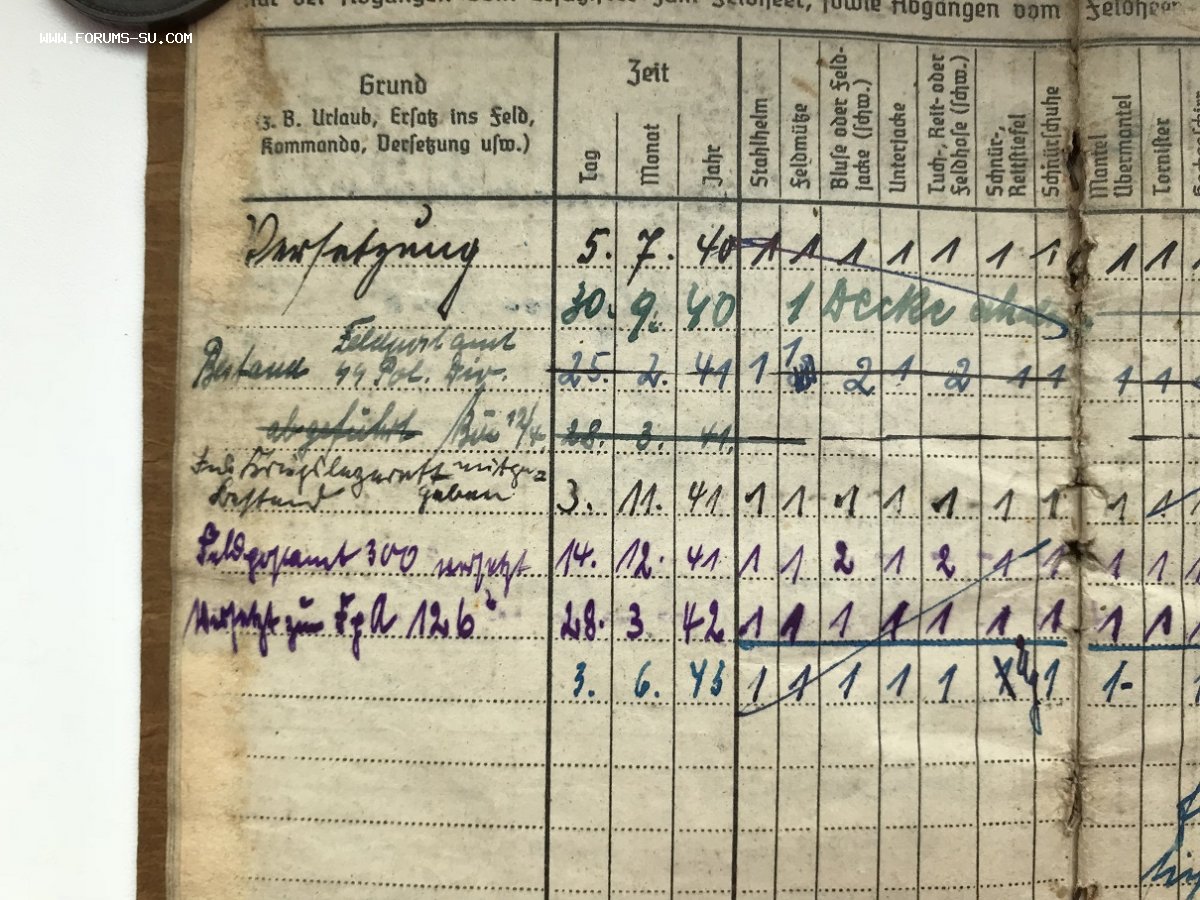 WWW.FORUMS-SU.COM
zum Feldheer, sowie Abgängen vom Feldheer
Grund
(z. B. Urlaub, Ersatz ins Feld,
Kommando, Versetzung usw.)
Zeit
Tag
Monat
Jahr
Stahlhelm
Feldmütze
Bluse oder Feld-
jacke (schw.)
Unterjacke
Tuch-, Reit- oder
Feldhose (schw.)
Schnür-,
Reitstiefel
Schnürschuhe
Mantel
Übermantel
Tornister
Versetzung 5. 7. 40 1 1 1 1 1 1 1 1 1 1
30. 9. 40 1 Decke
Feldpostamt
Bestand SS Pol. Div. 25. 2. 41 1 1 2 1 2 1 1 1 1
abgeführt 12/4. 28. 3. 41.
Ins Kriegslazarett mitge=
Bestand geben 3. 11. 41 1 1 1 1 1 1 1 1 1
Feldpostamt 300 versetzt 14. 12. 41 1 1 2 1 2 1 1 1 1 1
Versetzt zum FpA 126 28. 3 42 1 1 1 1 1 1 1 1 1 1
3. 6. 43 1 1 1 1 1 1 1-